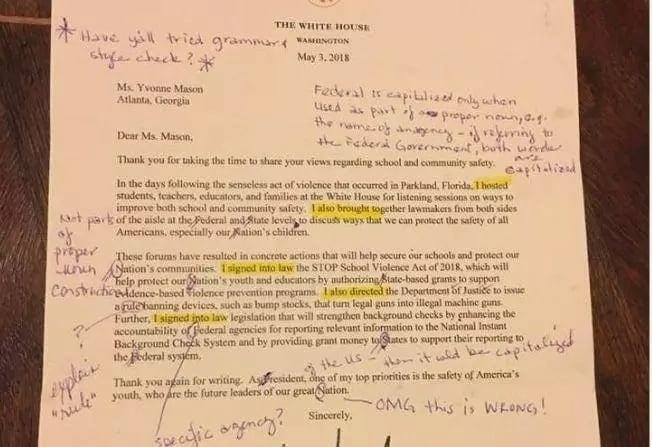 THE WHITE HOUSE
WASHINGTON
* Have y'all tried grammar &
style check? *
May 3, 2018
Ms. Yvonne Mason
Atlanta, Georgia
Federal is capitalized only when
used as part of a proper noun, e.g.
the name of an agency - if referring to
the Federal Government, both words
are
capitalized
Dear Ms. Mason,
Thank you for taking the time to share your views regarding school and community safety.
In the days following the senseless act of violence that occurred in Parkland, Florida, I hosted
students, teachers, educators, and families at the White House for listening sessions on ways to
improve both school and community safety. I also brought together lawmakers from both sides
of the aisle at the Federal and State levels to discuss ways that we can protect the safety of all
Americans, especially our Nation's children.
Not part
of
proper
noun
construction
These forums have resulted in concrete actions that will help secure our schools and protect our
Nation's communities. I signed into law the STOP School Violence Act of 2018, which will
help protect our Nation's youth and educators by authorizing State-based grants to support
evidence-based violence prevention programs. I also directed the Department of Justice to issue
a rule banning devices, such as bump stocks, that turn legal guns into illegal machine guns.
Further, I signed into law legislation that will strengthen background checks by enhancing the
accountability of Federal agencies for reporting relevant information to the National Instant
Background Check System and by providing grant money to States to support their reporting to
the Federal system.
?
explain
"rule"
of the US - then it would be capitalized
Thank you again for writing. As President, one of my top priorities is the safety of America's
youth, who are the future leaders of our great Nation.
OMG this is WRONG!
Sincerely,
specific agency?